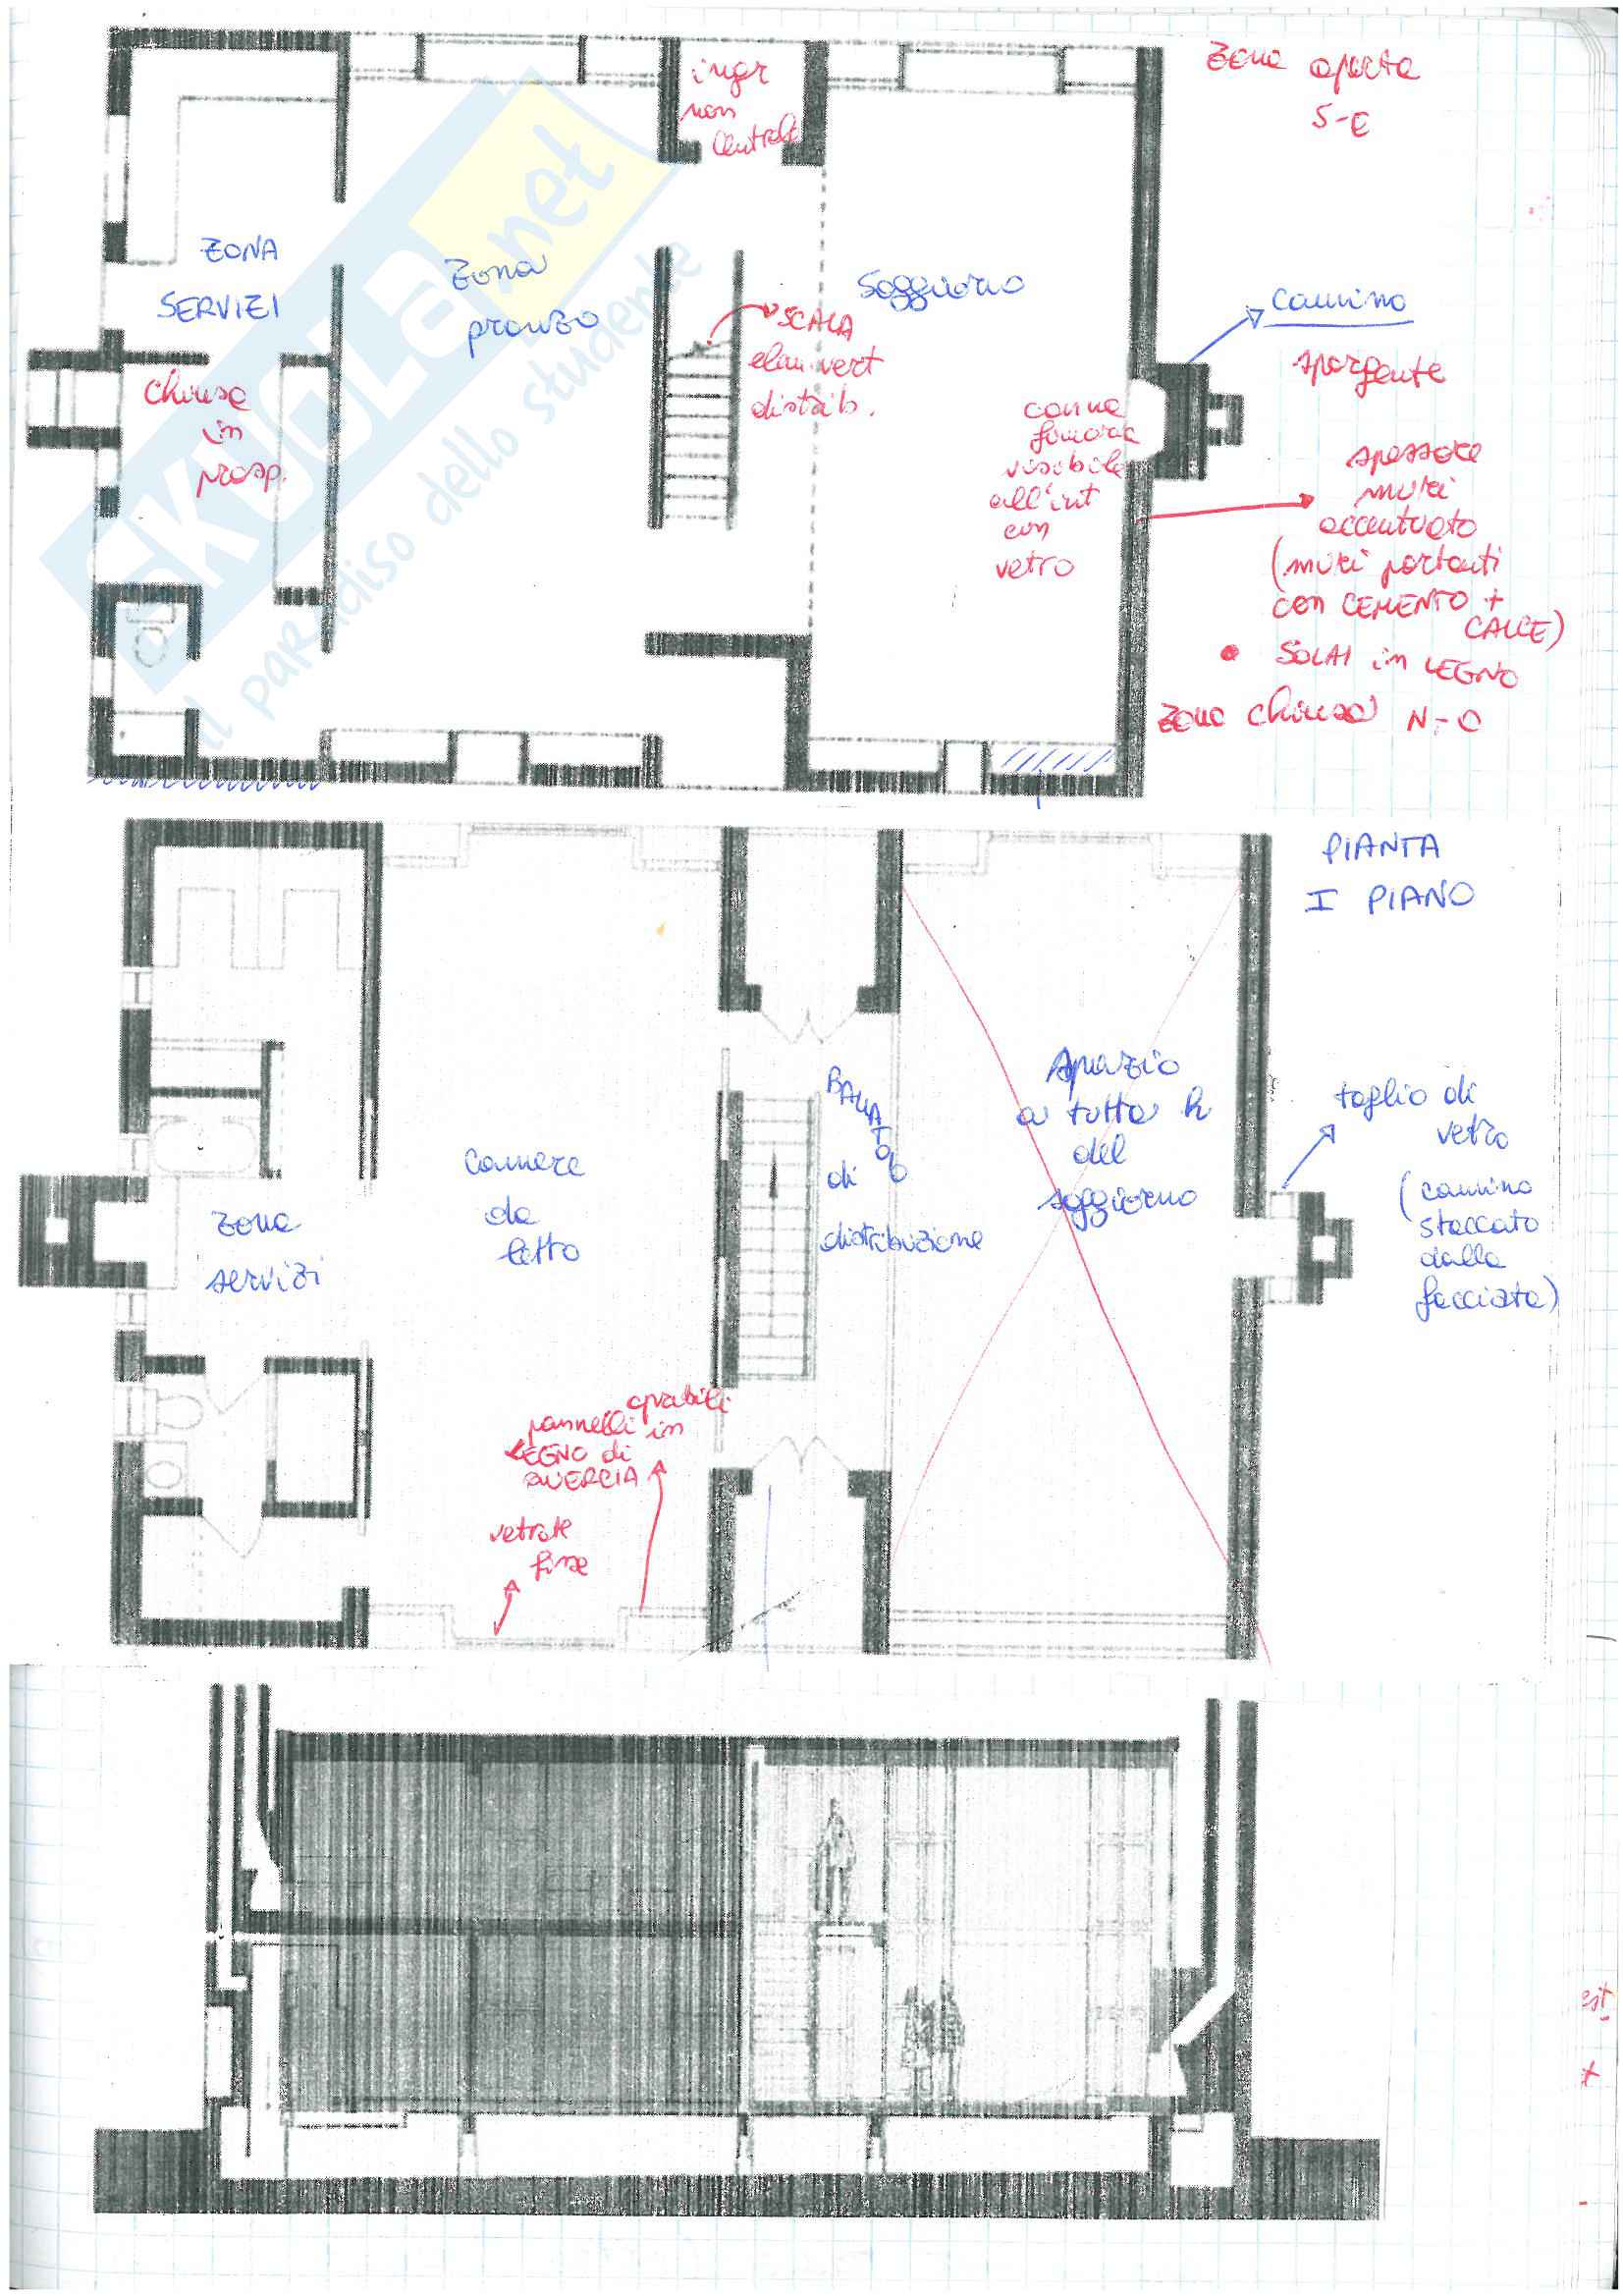 Zona aperta
S-E
ingr
non
centrale
ZONA
SERVIZI
Zona
pranzo
Soggiorno
camino
sporgente
SCALA
elem. vert
distrib.
chiusa
in
prosp.
canna
fumaria
visibile
all'int
con
vetro
spessore
muri
accentuato
(muri portanti
con CEMENTO +
CALCE)
• SOLAI in LEGNO
Zona chiusa N-O
SKUOLA.net
il paradiso dello studente
PIANTA
I PIANO
Zona
servizi
Camere
da
letto
BALLATOIO
di
distribuzione
Spazio
a tutta h
del
soggiorno
taglio di
vetro
(camino
staccato
dalla
facciata)
pannelli apribili in
LEGNO di
QUERCIA
vetrate
fisse
est
+